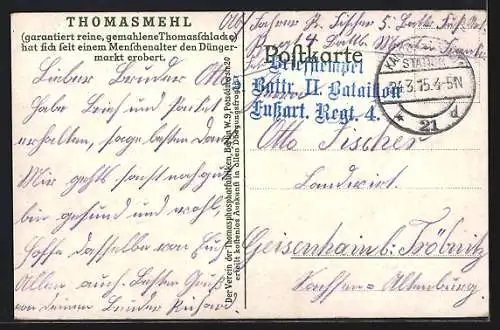 THOMASMEHL
(garantiert reine, gemahlene Thomasschlacke)
hat sich seit einem Menschenalter den Dünger-
markt erobert.
Lieber Bruder Otto
Habe Brief und Packet
erhalten, sage besten Dank
Mir geht's sonst noch gut
bin gesund und wohl,
hoffe dasselbe von Euch
Allen auch. Besten Gruß
von deinem Bruder Richard.
Der Verein der Thomasphosphatfabriken, Berlin W. 9,
erteilt kostenlos Auskunft in allen Düngungsfragen.
Fischer 5.
Postkarte
Briefstempel
Battr. II. Bataillon
Fußart. Regt. 4.
3.15.
21 d
Otto Fischer
Landwirt.
Geisenhain b. Tröbnitz
Sachsen-Altenburg.